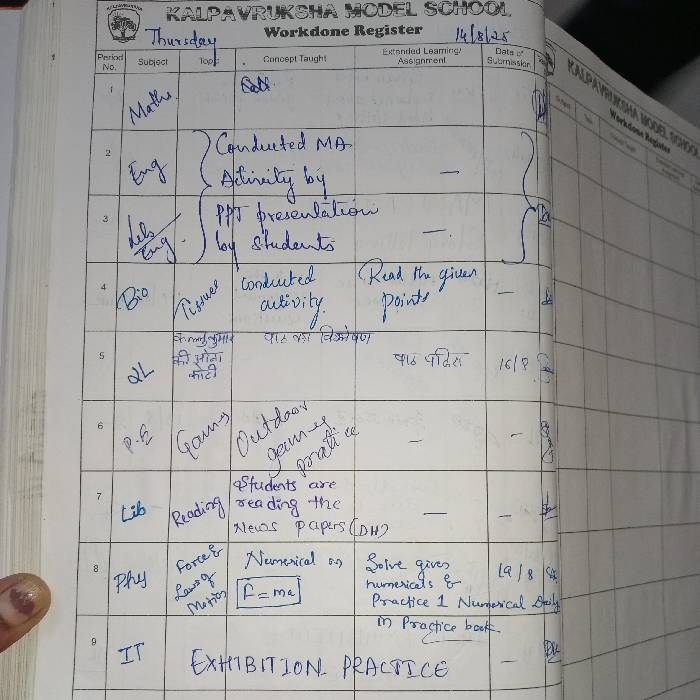 KALPAVRUKSHA MODEL SCHOOL
Workdone Register
Thursday 14/8/25
Period No. Subject Topic Concept Taught Extended Learning/ Assignment Date of Submission
1 Maths
2 Eng Conducted MA
Activity by —
3 Eng PPT presentation
by students —.
4 Bio Tissues Conducted activity. Read the given points —
5 2L की सोना पाठ का विश्लेषण पाठ पढ़िए 16/8
6 P.E Games Outdoor games practice — —
7 Lib Reading Students are reading the News papers (DH) — —
8 Phy Force & Laws of Motion Numerical on F = ma Solve given numericals & Practice 1 Numerical Daily in Practice book. 19/8
9 IT EXHIBITION PRACTICE —
KALPAVRUKSHA MODEL SCHOOL
Workdone Register